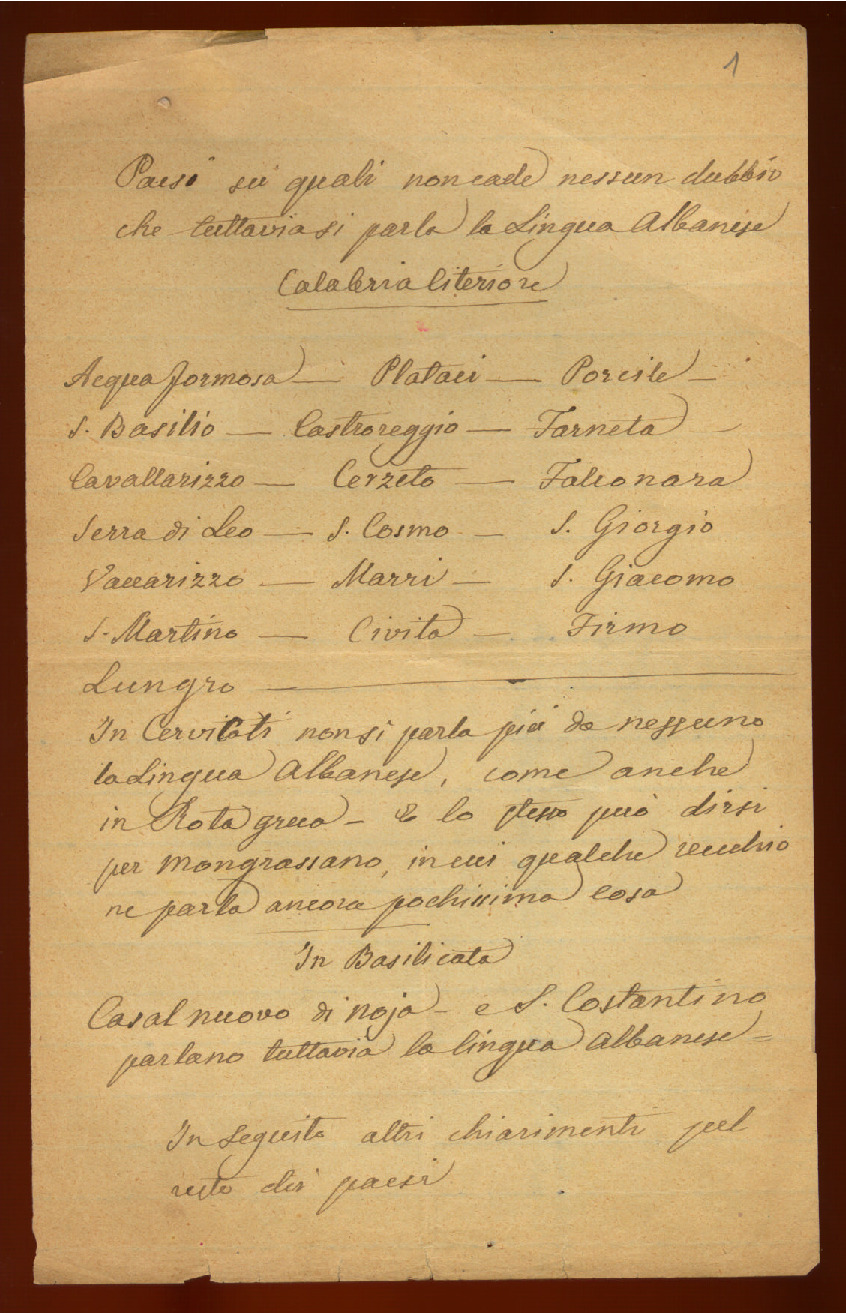 1
Paesi sui quali non cade nessun dubbio
che tuttavia si parla la Lingua Albanese
Calabria Citeriore
Acqua formosa — Plataci — Porcile —
S. Basilio — Castroreggio — Farneta —
Cavallarizzo — Cerzeto — Falconara
Serra di Leo — S. Cosmo — S. Giorgio
Vaccarizzo — Marri — S. Giacomo
S. Martino — Civita — Firmo
Lungro —
In Cervicati non si parla più da nessuno
la Lingua Albanese, come anche
in Rota greca — E lo stesso può dirsi
per Mongrassano, in cui qualche vecchio
ne parla ancora pochissima cosa
In Basilicata
Casalnuovo di Noja — e S. Costantino
parlano tuttavia la lingua Albanese =
In seguito altri chiarimenti pel
resto dei paesi